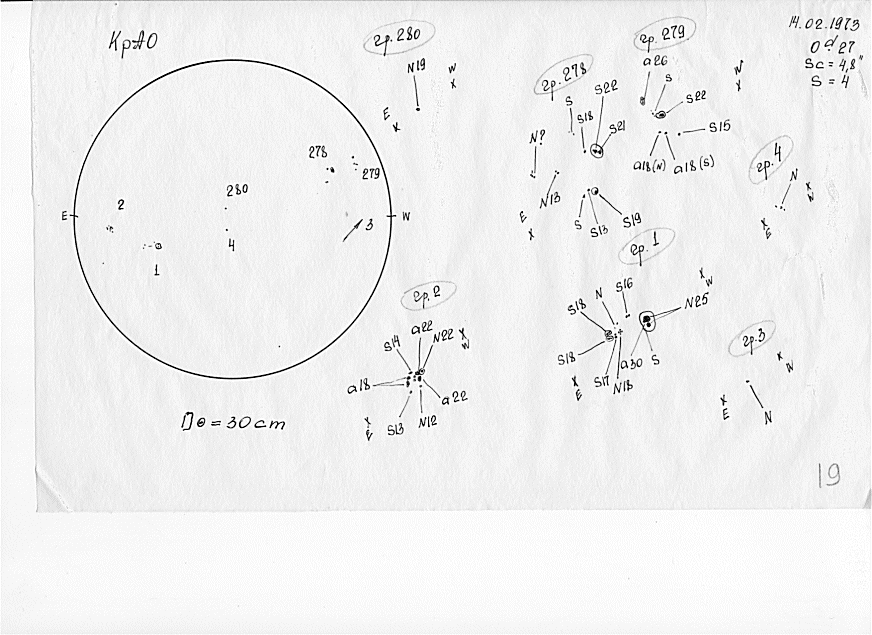 14.02.1973
0ᵈ.27
Sc = 4,8"
S = 4
КрАО
гр. 280
N19
W
X
E
X
гр. 278
S
S22
S18
S21
N?
N13
S
S13
S19
E
X
гр. 279
a26
S
S22
S15
a18(N)
a18(S)
W
X
гр. 4
N
X
W
X
E
278
279
280
2
4
1
3
E
W
гр. 2
a22
S14
N22
X
W
a18
a22
S13
N12
X
E
гр. 1
S16
N
S18
N25
X
W
S18
a30
S
S17
N18
X
E
гр. 3
X
W
X
E
N
D⊙ = 30 cm
19